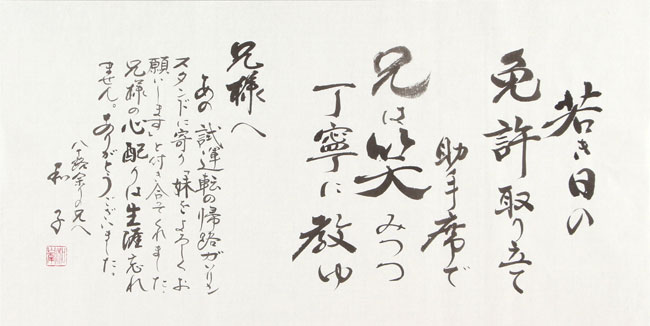 若き日の
免許取り立て
助手席で
兄は笑みつつ
丁寧に教ゆ
兄様へ
あの試運転の帰路ガソリン
スタンドに寄り「妹をよろしくお
願いします」と付き合てくれました。
兄様の心配りは生涯忘れ
ません。ありがとうございました。
八十路余りの兄へ
和子